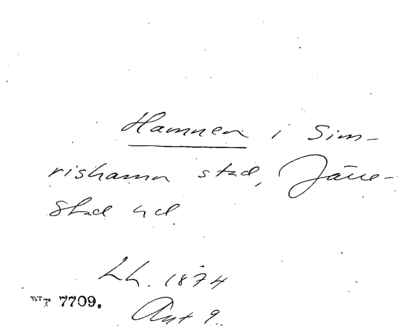 Hamnen i Sim-
rishamn stad, Järre-
stad hd.
Lh. 1874
7709.
Ant 9.